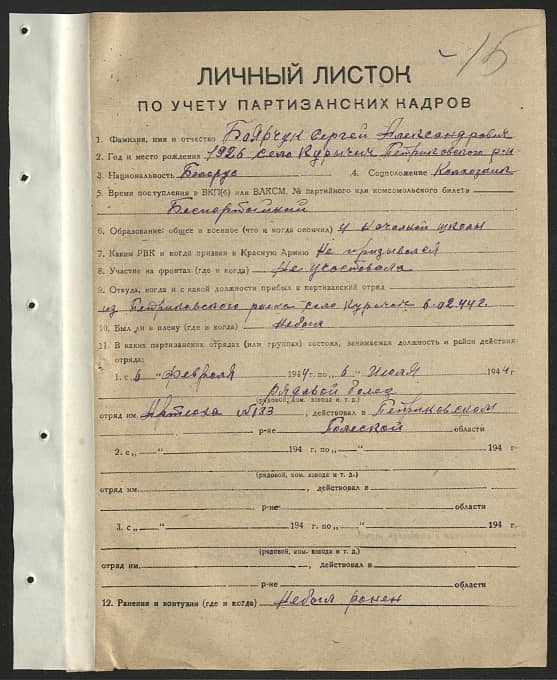 15
ЛИЧНЫЙ ЛИСТОК
ПО УЧЕТУ ПАРТИЗАНСКИХ КАДРОВ
1. Фамилия, имя и отчество Боярчук Сергей Александрович
2. Год и место рождения 1926 село Курычичи Петриковского р-н
3. Национальность Белорус 4. Соцположение Колхозник
5. Время поступления в ВКП(б) или ВЛКСМ, № партийного или комсомольского билета
Беспортыйний
6. Образование: общее и военное (что и когда окончил) 4 начальной школы
7. Каким РВК и когда призван в Красную Армию Не призывался
8. Участие на фронтах (где и когда) Не участовала
9. Откуда, когда и с какой должности прибыл в партизанский отряд
из Петриковського села 6.02.44 г.
10. Был ли в плену (где и когда) небыл
11. В каких партизанских отрядах (или группах) состоял, занимаемая должность и район действия
отряда:
1. с 6 " февраля 1944 г. по „ 6 " июля 1944 г.
рядовой боец
(рядовой, ком. взвода и т. д.)
отряд им. №133, действовал в Петриковском
р-не Полеской области
2. с „ " 194 г. по „ " 194 г.
(рядовой, ком. взвода и т. д.)
отряд им. , действовал в
р-не области
3. с „ " 194 г. по „ " 194 г.
(рядовой, ком. взвода и т. д.)
отряд им. , действовал в
р-не области
12. Ранения и контузии (где и когда) Небыл ранен